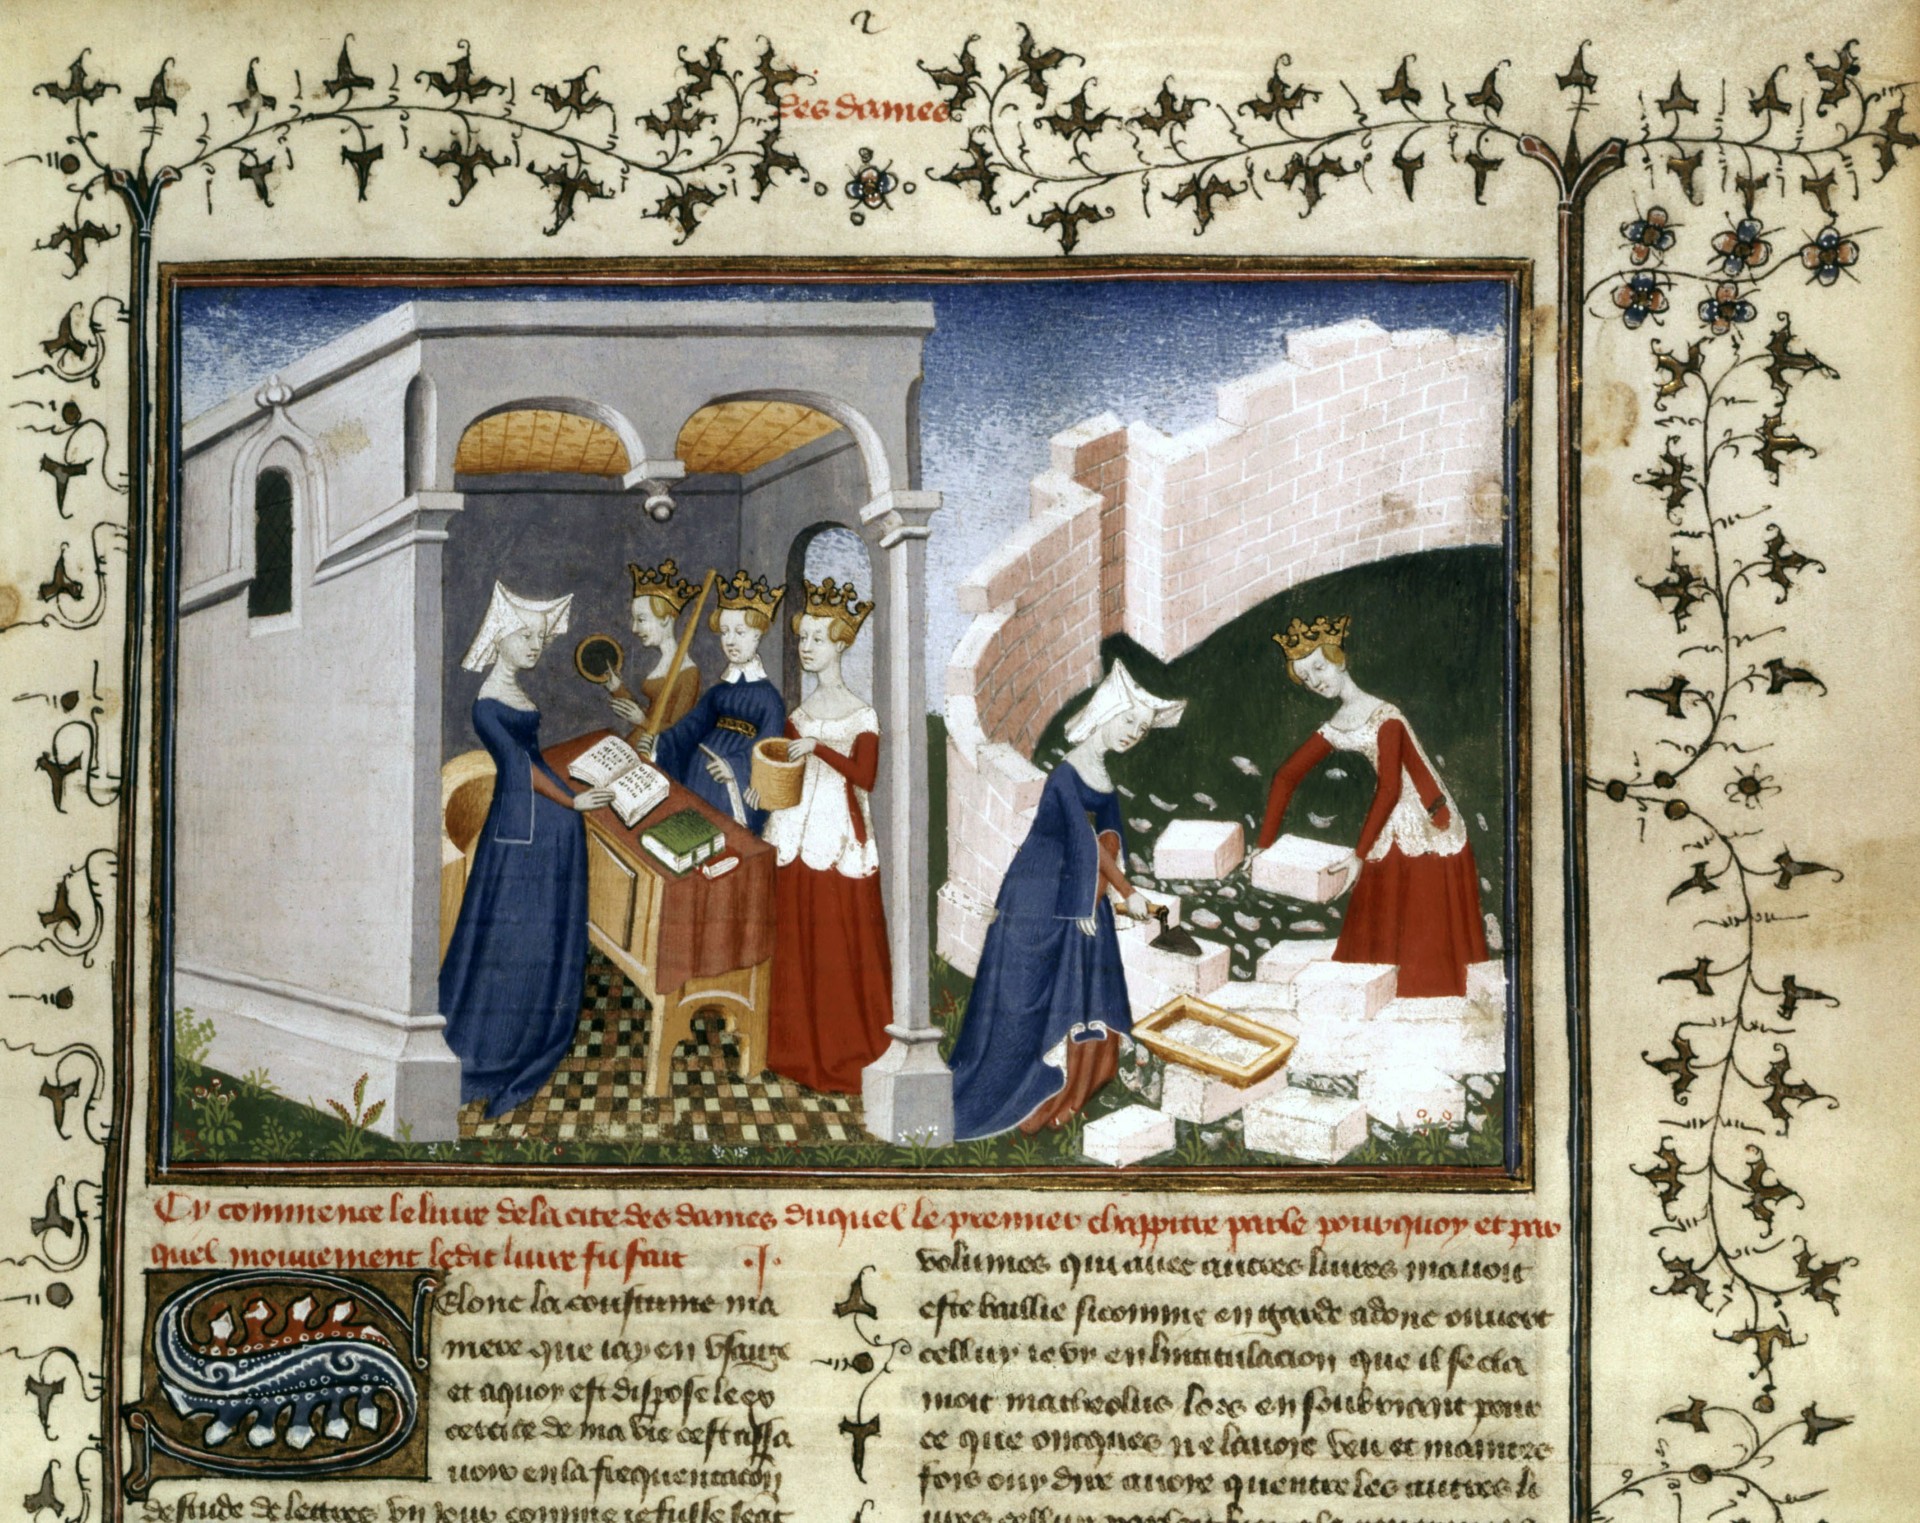 des dames
Cy commence le liure de la cite des dames duquel le premier chappitre parle pourquoy et par
quel mouuement ledit liure fu fait .I.
Selonc la coustume ma
niere que iay en vsaige
et a quoy est dispose le ex
cercite de ma vie cest assa
uoir en la frequentacion
destude de lettres vn iour comme ie fusse
volumes qui auec autres liures mauoit
este baillie si comme en garde adonc ouuert
cellui ie vy en lintitulacion que il se cla
moit matheolus lors en soubriant pour
ce que oncques ne lauoie veu et maintes
fois ouy dire auoie quentre les autres li